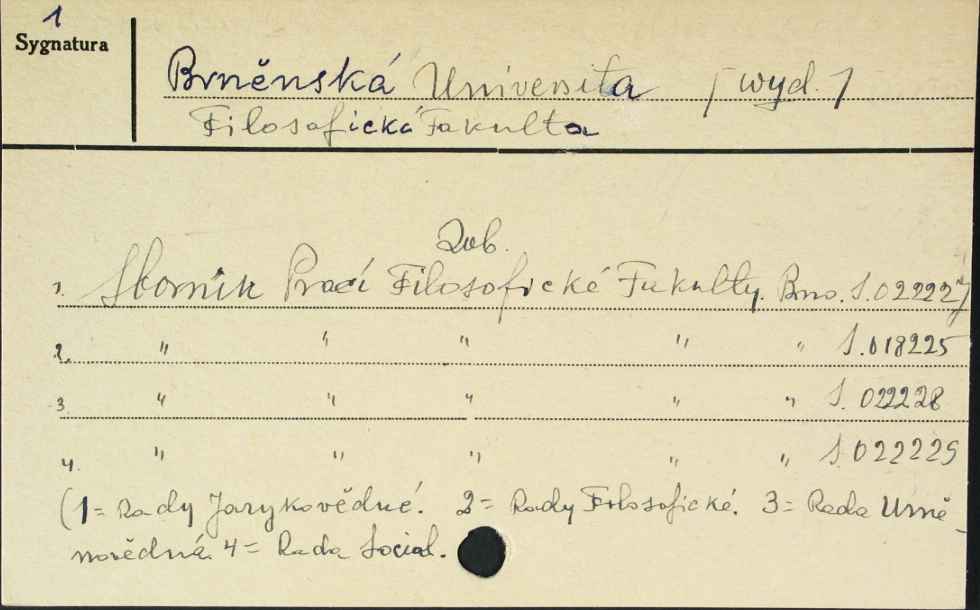 1
Sygnatura
Brněnská Universita / wyd. /
Filosofická Fakulta
Zob.
1. Sborník Prací Filosofické Fakulty. Brno. S.022227
2. " " " " " S.018225
3 " " " " " S. 022228
4. " " " " " S.022229
(1= Rady Jazykovědné. 2= Rady Filosofické. 3= Rada Umně-
novědná 4= Rada Social.